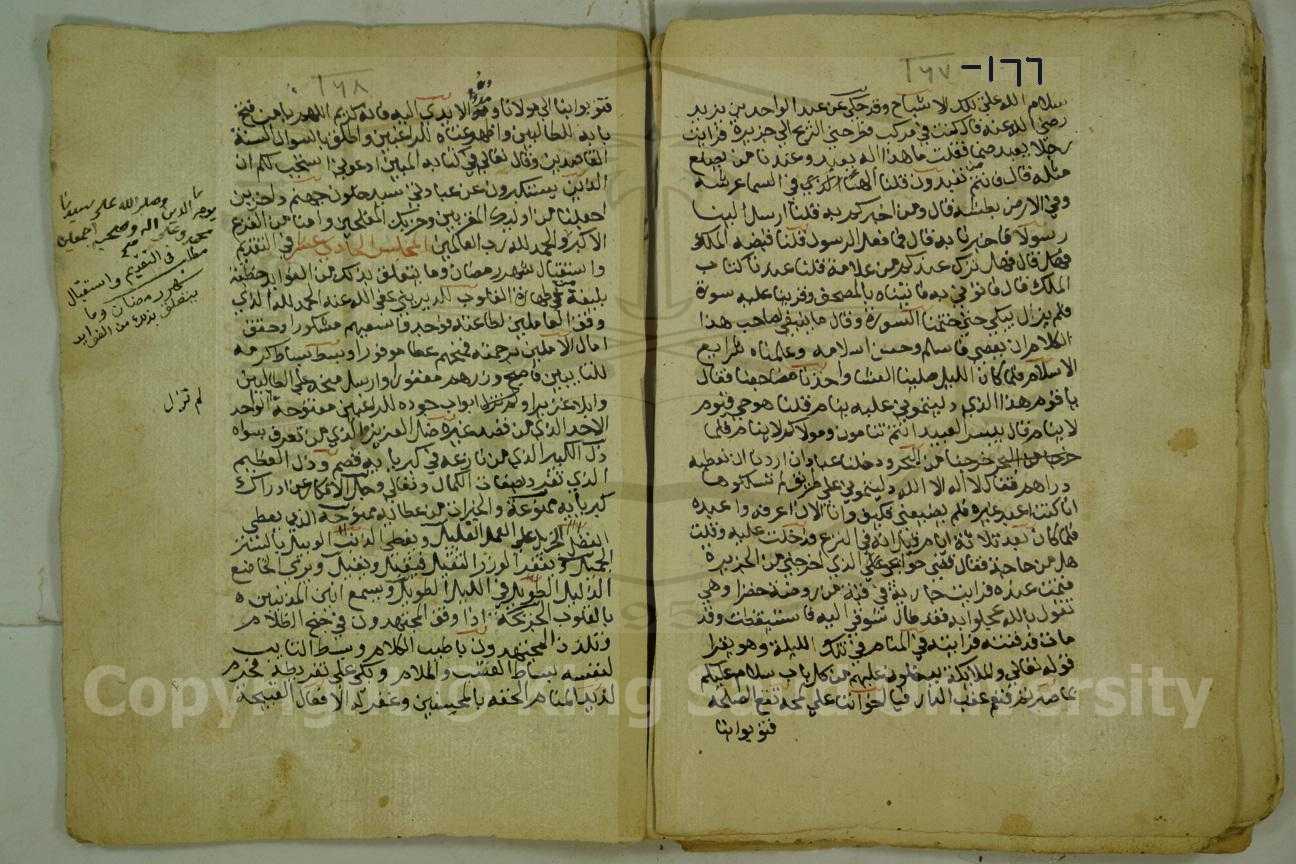 ١٦٧ -١٦٦
سلام الله على تلك الاشباح وقد حكي عن عبد الواحد بن يزيد
رضي الله عنه قال كنت في مركب فطرحتني الريح الى جزيرة فرايت
رجلا يعبد صنما فقلت ما هذا اله يعبد وعندنا من يصنع
مثله قال فانتم تعبدون قلنا الهنا الذي في السما عرشه
وفي الارض بطشه قال ومن اخبركم به قلنا ارسل الينا
رسولا فاخبرنا به قال فما فعل الرسول قلنا قبضه الملك
قال فهل ترك عندكم من علامة قلنا عندنا كتاب
الملك قال فاتوني به فاتيناه بالمصحف وقرينا عليه سورة
فلم يزال يبكي حتى ختمنا السورة وقال ما ينبغي لصاحب هذا
الكلام ان يعصي فاسلم وحسن اسلامه وعلمناه شرايع
الاسلام فلما كان الليل صلينا العشا واخذنا مضاجعنا فقال
يا قوم هذا الذي دليتموني عليه ينام قلنا هو حي قيوم
لا ينام قال بيس العبيد انتم تنامون ومولاكم لا ينام فلما
خرجنا من البحر ودخلنا عبادان اردنا ان نعطيه
دراهم فقال لا اله الا الله دليتموني على طريق لم تسلكوها
انا كنت اعبد غيره فلم يضيعني فكيف وانا الان اعرفه واعبده
فلما كان بعد ثلاثة ايام قيل انه في النزع فدخلت عليه وقلت
هل من حاجة فقال قضى حوايجي الذي اخرجني من الجزيرة
فنمت عنده فرايت جارية في قبة من روضة خضرا وهي
تقول بالله عجلوا به فقد طال شوقي اليه فاستيقظت وقد
مات فدفنته فرايته في المنام في تلك الليلة وهو يقرا
قوله تعالى والملائكة يدخلون عليهم من كل باب سلام عليكم
بما صبرتم فنعم عقبى الدار فيا اخواننا على لمحة تقع الصلحة
فتوبوا بنا
١٦٨
فتوبوا بنا الى مولانا ومدوا الايدي اليه فانه كريم اللهم يا من فتح
بابه للطالبين واظهر غناه للراغبين واطلق بالسوال السنة
القاصدين وقال تعالى في كتابه المبين ادعوني استجب لكم ان
الذين يستكبرون عن عبادتي سيدخلون جهنم داخرين
اجعلنا من اوليائك المقربين وحزبك المفلحين وامنا من الفزع
الاكبر والحمد لله رب العالمين المجلس الحادي عشر في التقديم
واستقبال شهر رمضان وما يتعلق بذكره من الفوايد خطبة
بليغة من طهارة القلوب للديريني عفى الله عنه الحمد لله الذي
وفق العاملين لطاعته فوجد واسعيهم مشكورا وحقق
امال الاملين برحمته فمنحهم عطا موفورا وبسط بساط كرمه
للتايبين فاصبح وزرهم مغفورا وارسل
ابواب جوده للراغبين مفتوحة الواحد
الاحد الذي من قصد غيره ضل العزيز الذي من تعزز بسواه
ذل الكبير الذي من نازعه في كبريايه قصم وذل العظيم
الذي تفرد بصفات الكمال وتعالى وجل الافكار عن ادراك
كبريايه ممنوعة والخيرات من عطايه ممنوحة الذي يعطي
الفضل الجزيل على العمل القليل ويغطي الذنب الوبيل بالستر
الجميل ويغفر الوزر الثقيل فيقيل ويقبل ويرى الخاضع
الذليل الطويل في الليل الطويل ويسمع انين المذنبين ه
بالقلوب الجريحة اذا وقف المجتهدون في جنح الظلام
وتلذذ المجتهدون باطيب الكلام وبسط التايب
لنفسه بساط العتب والملام وبكى على تفريطه فحرم
لذيذ المنام الحقه بالمحسنين وغفر له الافعال القبيحة
وصلى الله على سيدنا
محمد وعلى اله وصحبه اجمعين
مطلب في التقديم واستقبال
شهر رمضان وما
يتعلق بذكره من الفوايد
لم تزل
Copyright © King Saud University